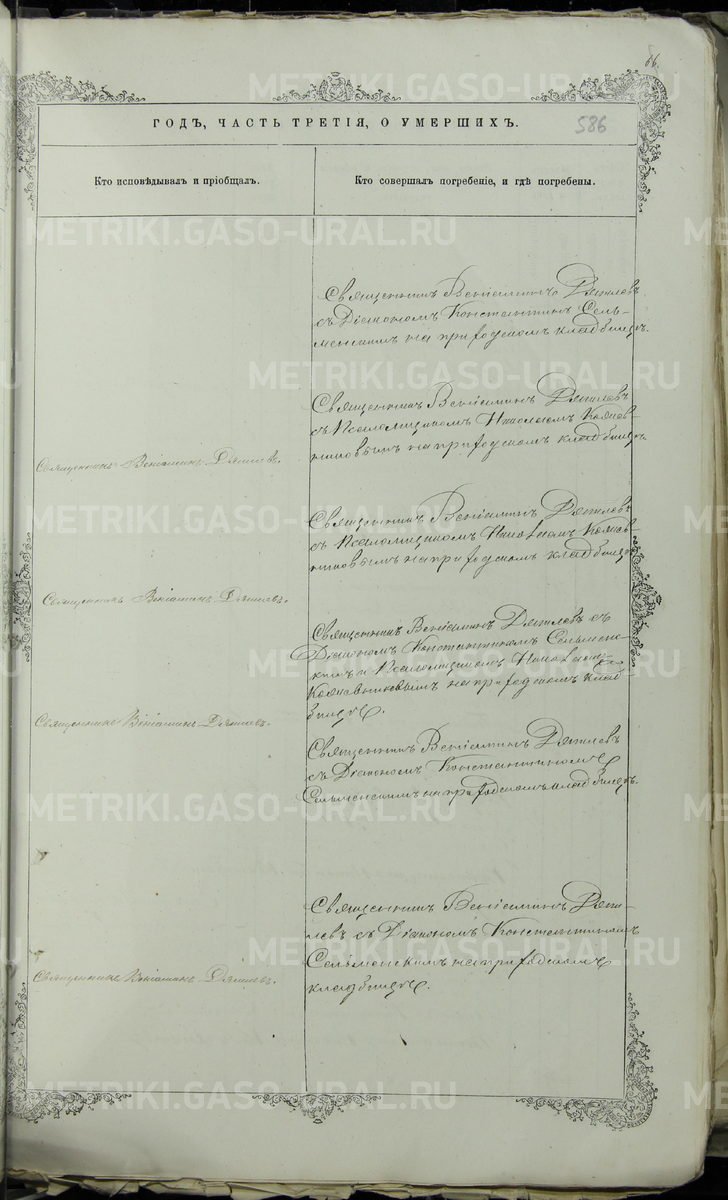 66.
ГОДЪ, ЧАСТЬ ТРЕТІЯ, О УМЕРШИХЪ.
586
Кто исповѣдывалъ и пріобщалъ.
Кто совершалъ погребеніе, и гдѣ погребены.
Священникъ Веніаминъ Дягилевъ
съ Діакономъ Константин Сель-
менскимъ на приходскомъ кладбищѣ.
Священникъ Веніаминъ Дягилевъ
съ Псаломщикомъ Николаемъ
на приходскомъ кладбищѣ.
Священникъ Веніаминъ Дягилевъ.
Священникъ Веніаминъ Дягилевъ
съ Псаломщикомъ Николаемъ
на приходскомъ кладбищѣ
Священникъ Веніаминъ Дягилевъ.
Священникъ Веніаминъ Дягилевъ съ
Діакономъ Константиномъ Сельменс-
кимъ и Псаломщикомъ Николаемъ
на приходскомъ клад-
бищѣ.
Священникъ Веніаминъ Дягилевъ.
Священникъ Веніаминъ Дягилевъ
съ Діакономъ Константиномъ
Сельменскимъ на приходскомъ кладбищѣ.
Священникъ Веніаминъ Дяги-
левъ съ Діакономъ Константиномъ
Сельменскимъ на приходскомъ
кладбищѣ.
Священникъ Веніаминъ Дягилевъ.
METRIKI.GASO-URAL.RU